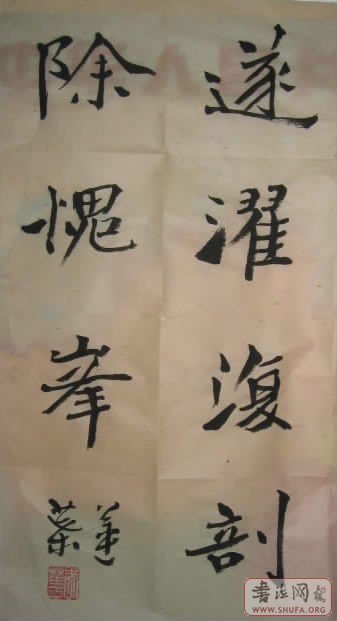 遂濯復剖
除愧峯
书法网
WWW.SHUFA.ORG